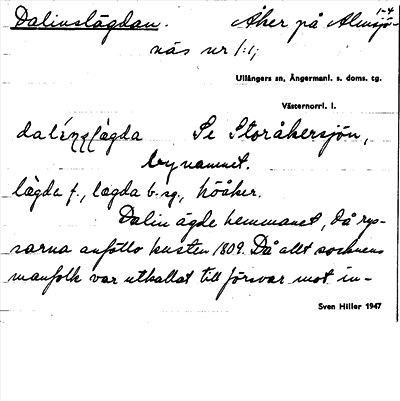 Dalinslägdan. Åker på Almsjö- 1-4
näs nr 1:1;
Ullångers sn, Ångermanl. s. doms. tg.
Västernorrl. l.
Se Storåkersjön,
bynamnet.
lägda f., lägda b. sg., höåker.
Dalin ägde hemmanet, då rys-
sarna anföllo kusten 1809. Då allt socknens
manfolk var utkallat till försvar mot in-
Sven Hiller 1947